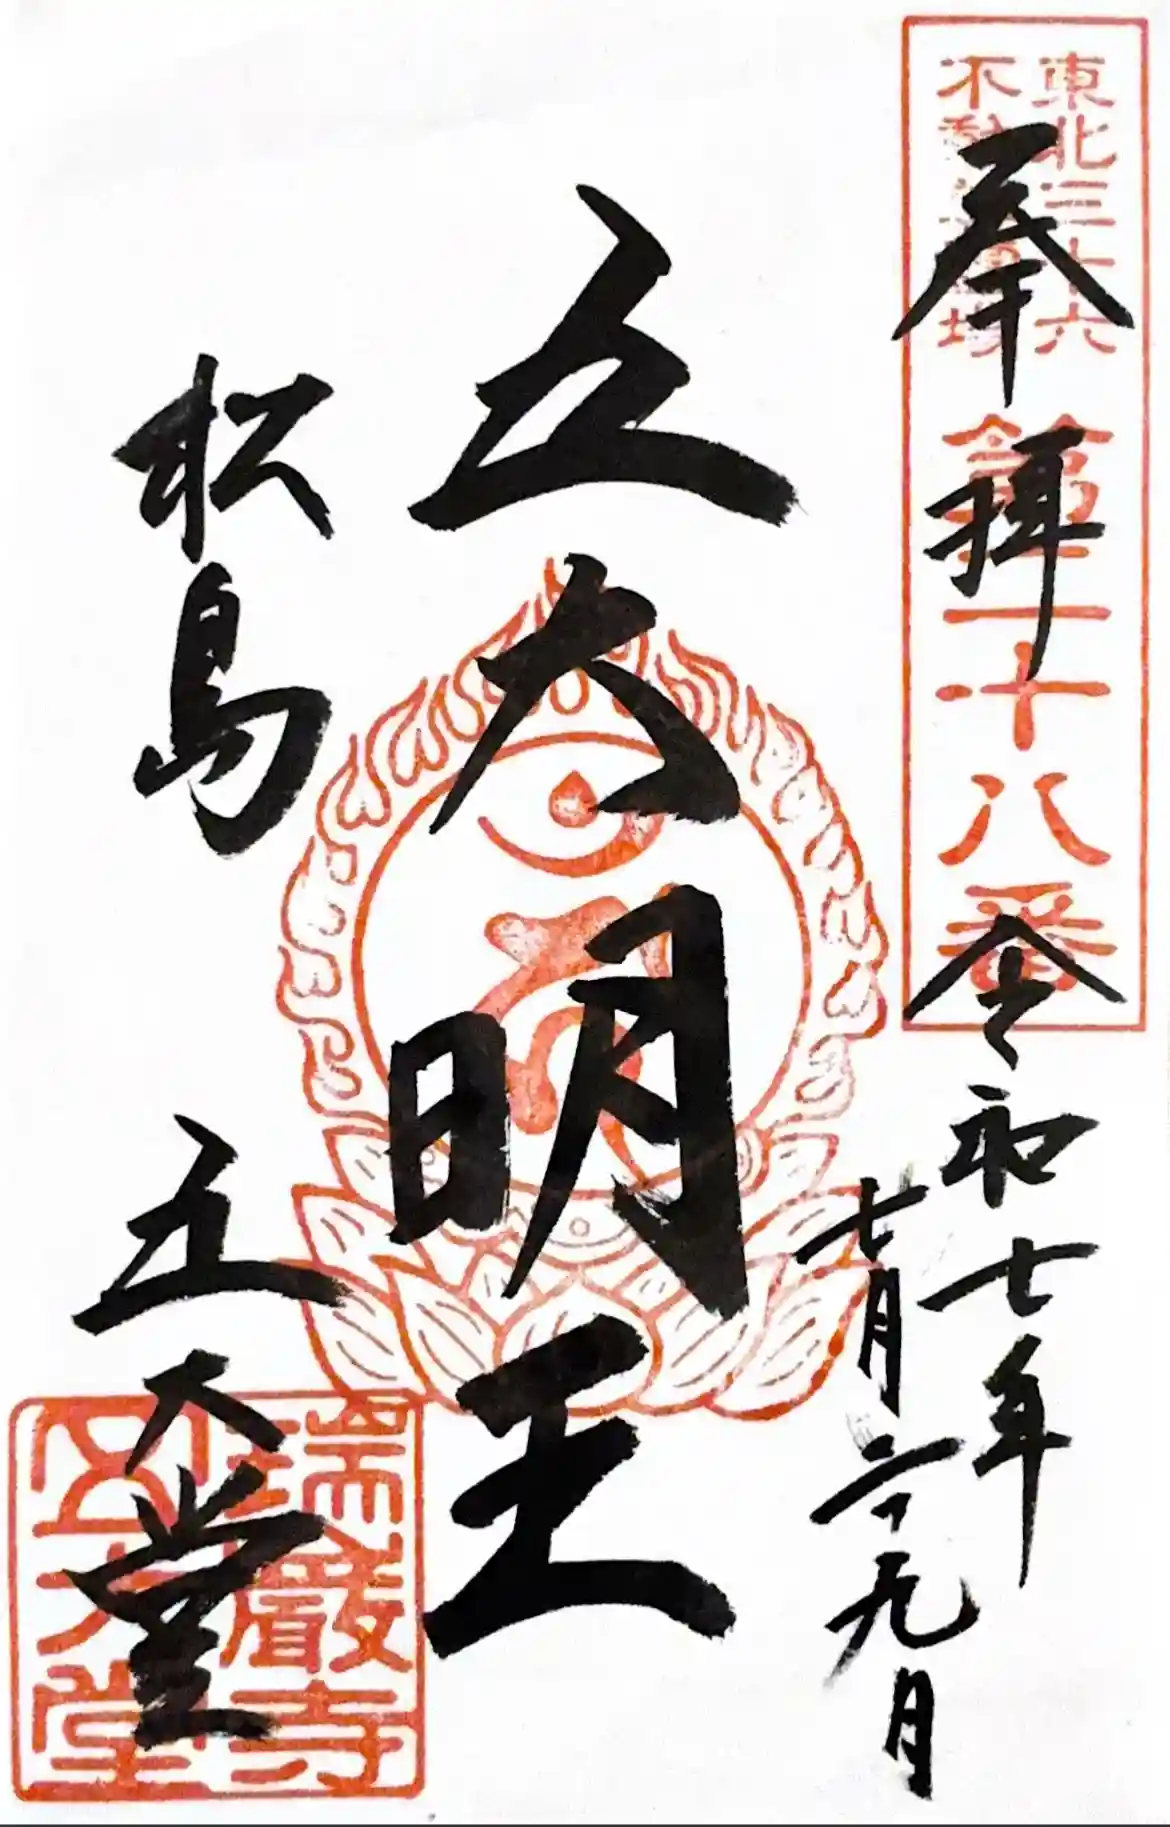 東北三十六
不動尊霊場
第二十八番
奉拝
令和七年
七月二十九日
五大明王
松島
五大堂
瑞巌寺
五大堂